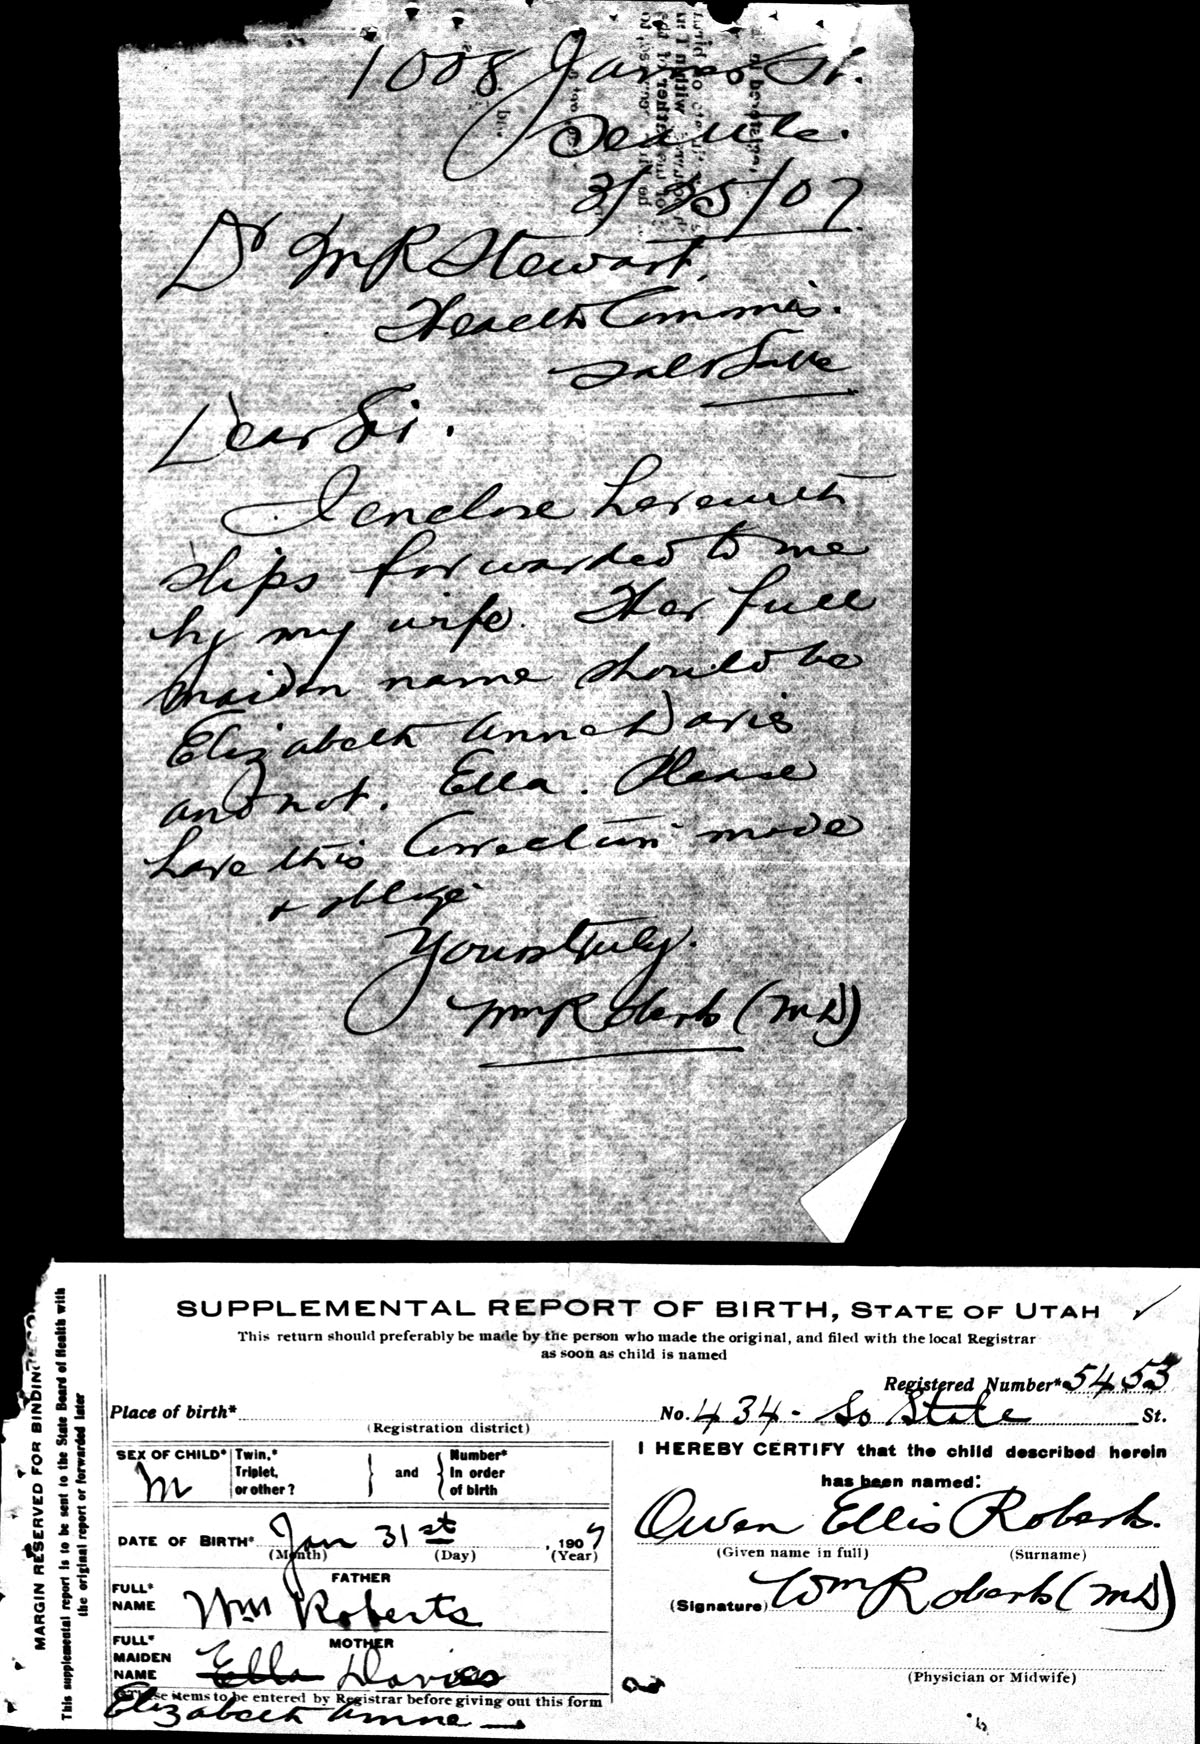 1008 James St.
Seattle.
3/25/07
Dr M R Stewart,
Health Commis.
Salt Lake
Dear Sir.
I enclose herewith
slips forwarded to me
by my wife. Her full
maiden name should be
Elizabeth Anne Davis
and not. Ella. Please
have this Correction made
& oblige
Yours truly.
Wm Roberts (MD)
MARGIN RESERVED FOR BINDING
This supplemental report is to be sent to the State Board of Health with
the original report or forwarded later
SUPPLEMENTAL REPORT OF BIRTH, STATE OF UTAH
This return should preferably be made by the person who made the original, and filed with the local Registrar
as soon as child is named
Registered Number* 5453
Place of birth* No. 434 - So State St.
(Registration district)
SEX OF CHILD* M Twin,* Triplet, or other? and Number* in order of birth
DATE OF BIRTH* Jan 31st, 1907
(Month) (Day) (Year)
FATHER
FULL* NAME Wm Roberts
MOTHER
FULL* MAIDEN NAME Ella Davies
*These items to be entered by Registrar before giving out this form
Elizabeth Anne
I HEREBY CERTIFY that the child described herein
has been named:
Owen Ellis Roberts.
(Given name in full) (Surname)
(Signature) Wm Roberts (MD)
(Physician or Midwife)